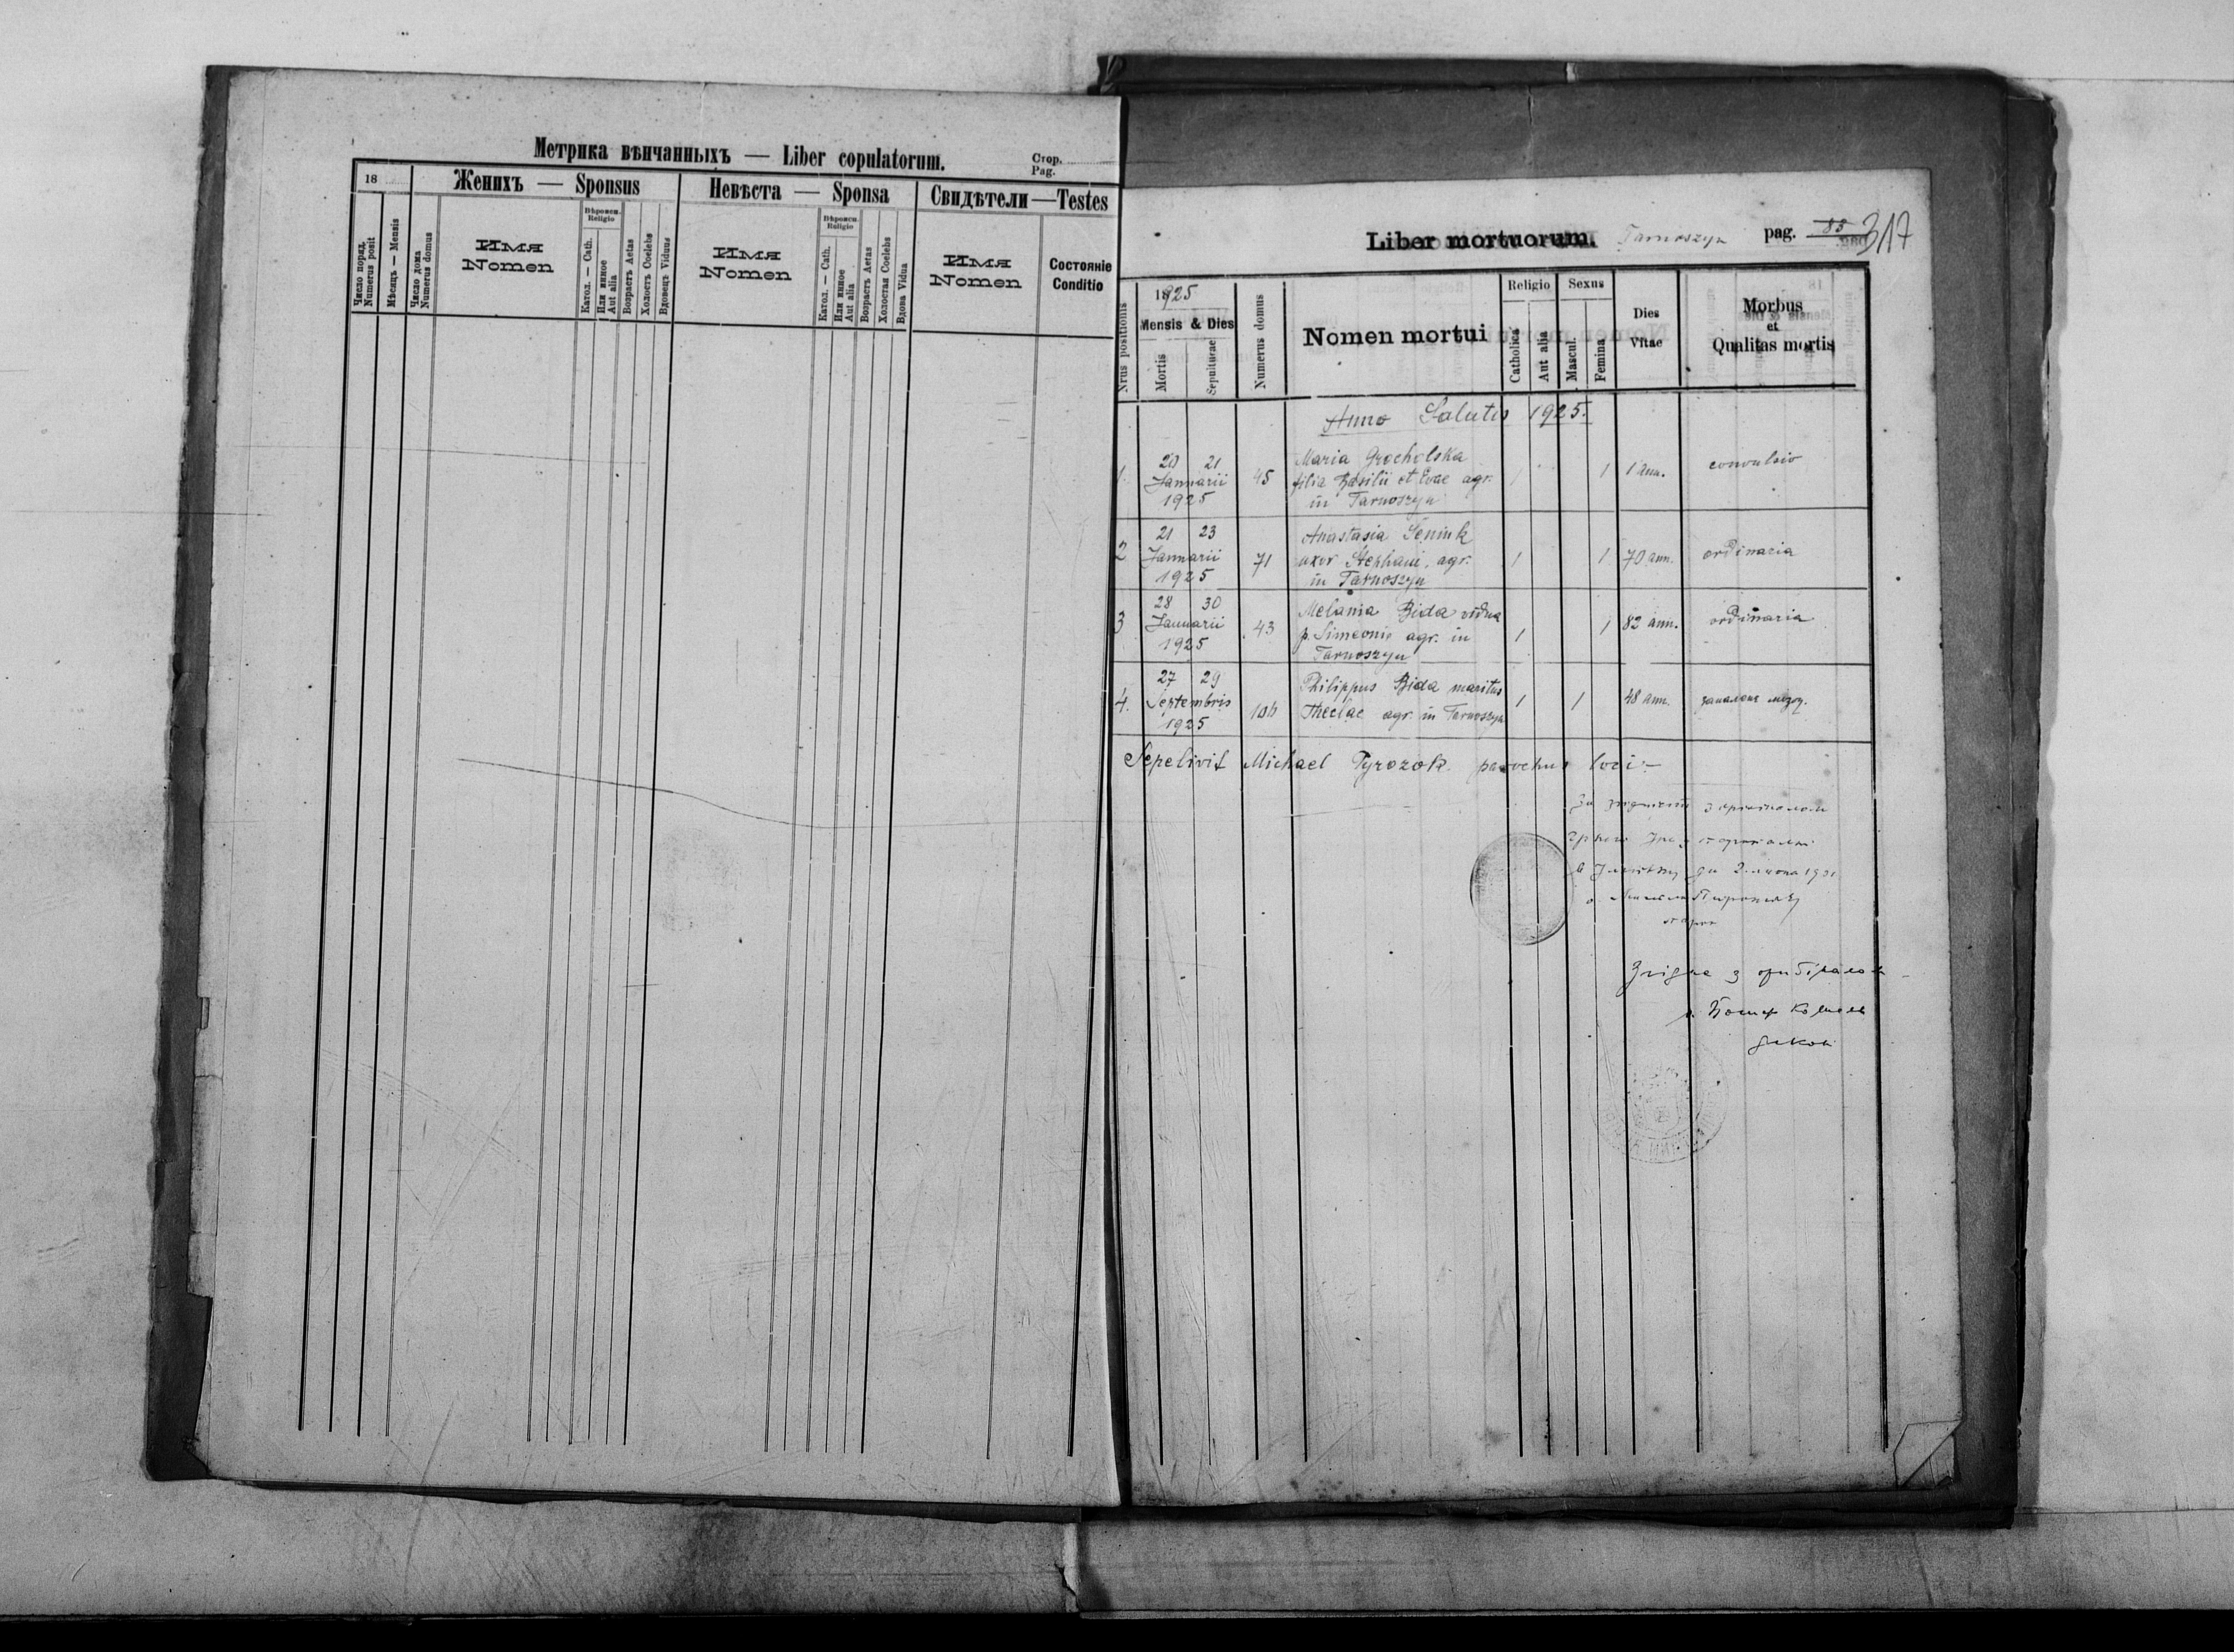 Метрика вѣнчанныхъ — Liber copulatorum.
Стор.
Pag.
18
Женихъ — Sponsus
Невѣста — Sponsa
Свидѣтели — Testes
Число поряд.
Numerus posit
Мѣсяцъ — Mensis
Число дома
Numerus domus
Имя
Nomen
Вѣроисп.
Religio
Катол. — Cath.
Или инное
Aut alia
Возрастъ Aetas
Холостъ Coelebs
Вдовецъ Viduus
Имя
Nomen
Вѣроисп.
Religio
Катол. — Cath.
Или инное
Aut alia
Возрастъ Aetas
Холостая Coelebs
Вдова Vidua
Имя
Nomen
Состояніе
Conditio
Liber mortuorum. Tarnoszyn pag. 83 317
Nrus positionis
1925
Mensis & Dies
Mortis
Sepulturae
Numerus domus
Nomen mortui
Religio
Catholica
Aut alia
Sexus
Mascul.
Femina
Dies
Vitae
Morbus
et
Qualitas mortis
Anno Salutis 1925.
1 20 21 Januarii 1925 45 Maria Grocholska 1 1 1 ann. convulsio
filia Basilii et Evae agr.
in Tarnoszyn
2 21 23 Januarii 1925 71 Anastasia Seniuk 1 1 70 ann. ordinaria
uxor Stephani, agr.
in Tarnoszyn
3 28 30 Januarii 1925 43 Melania Bida vidua 1 1 82 ann. ordinaria
p. Simeonis agr. in
Tarnoszyn
4. 27 29 Septembris 1925 106 Philippus Bida maritus 1 1 48 ann. запаленє мозку.
Theclae agr. in Tarnoszyn
Sepelivit Michael Pyrozok parochus loci.—
За згідність з оригіналом
1931
Згідне з оригіналом
декан